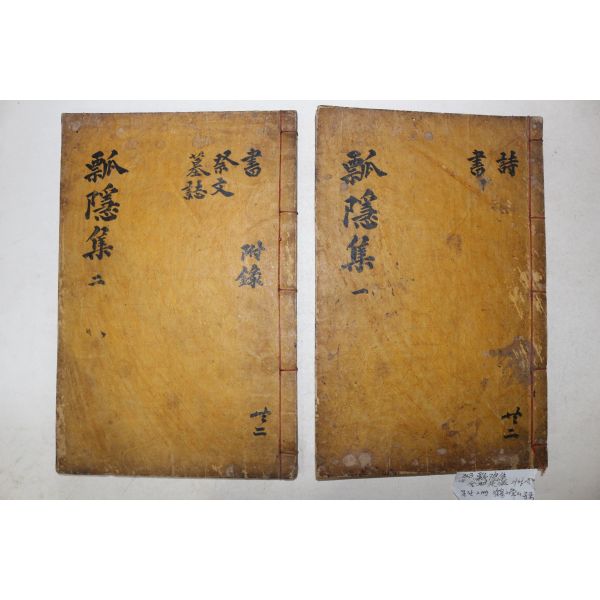 詩
書
瓢隱集 一
共二
書
祭文
墓誌
附錄
瓢隱集 二
共二